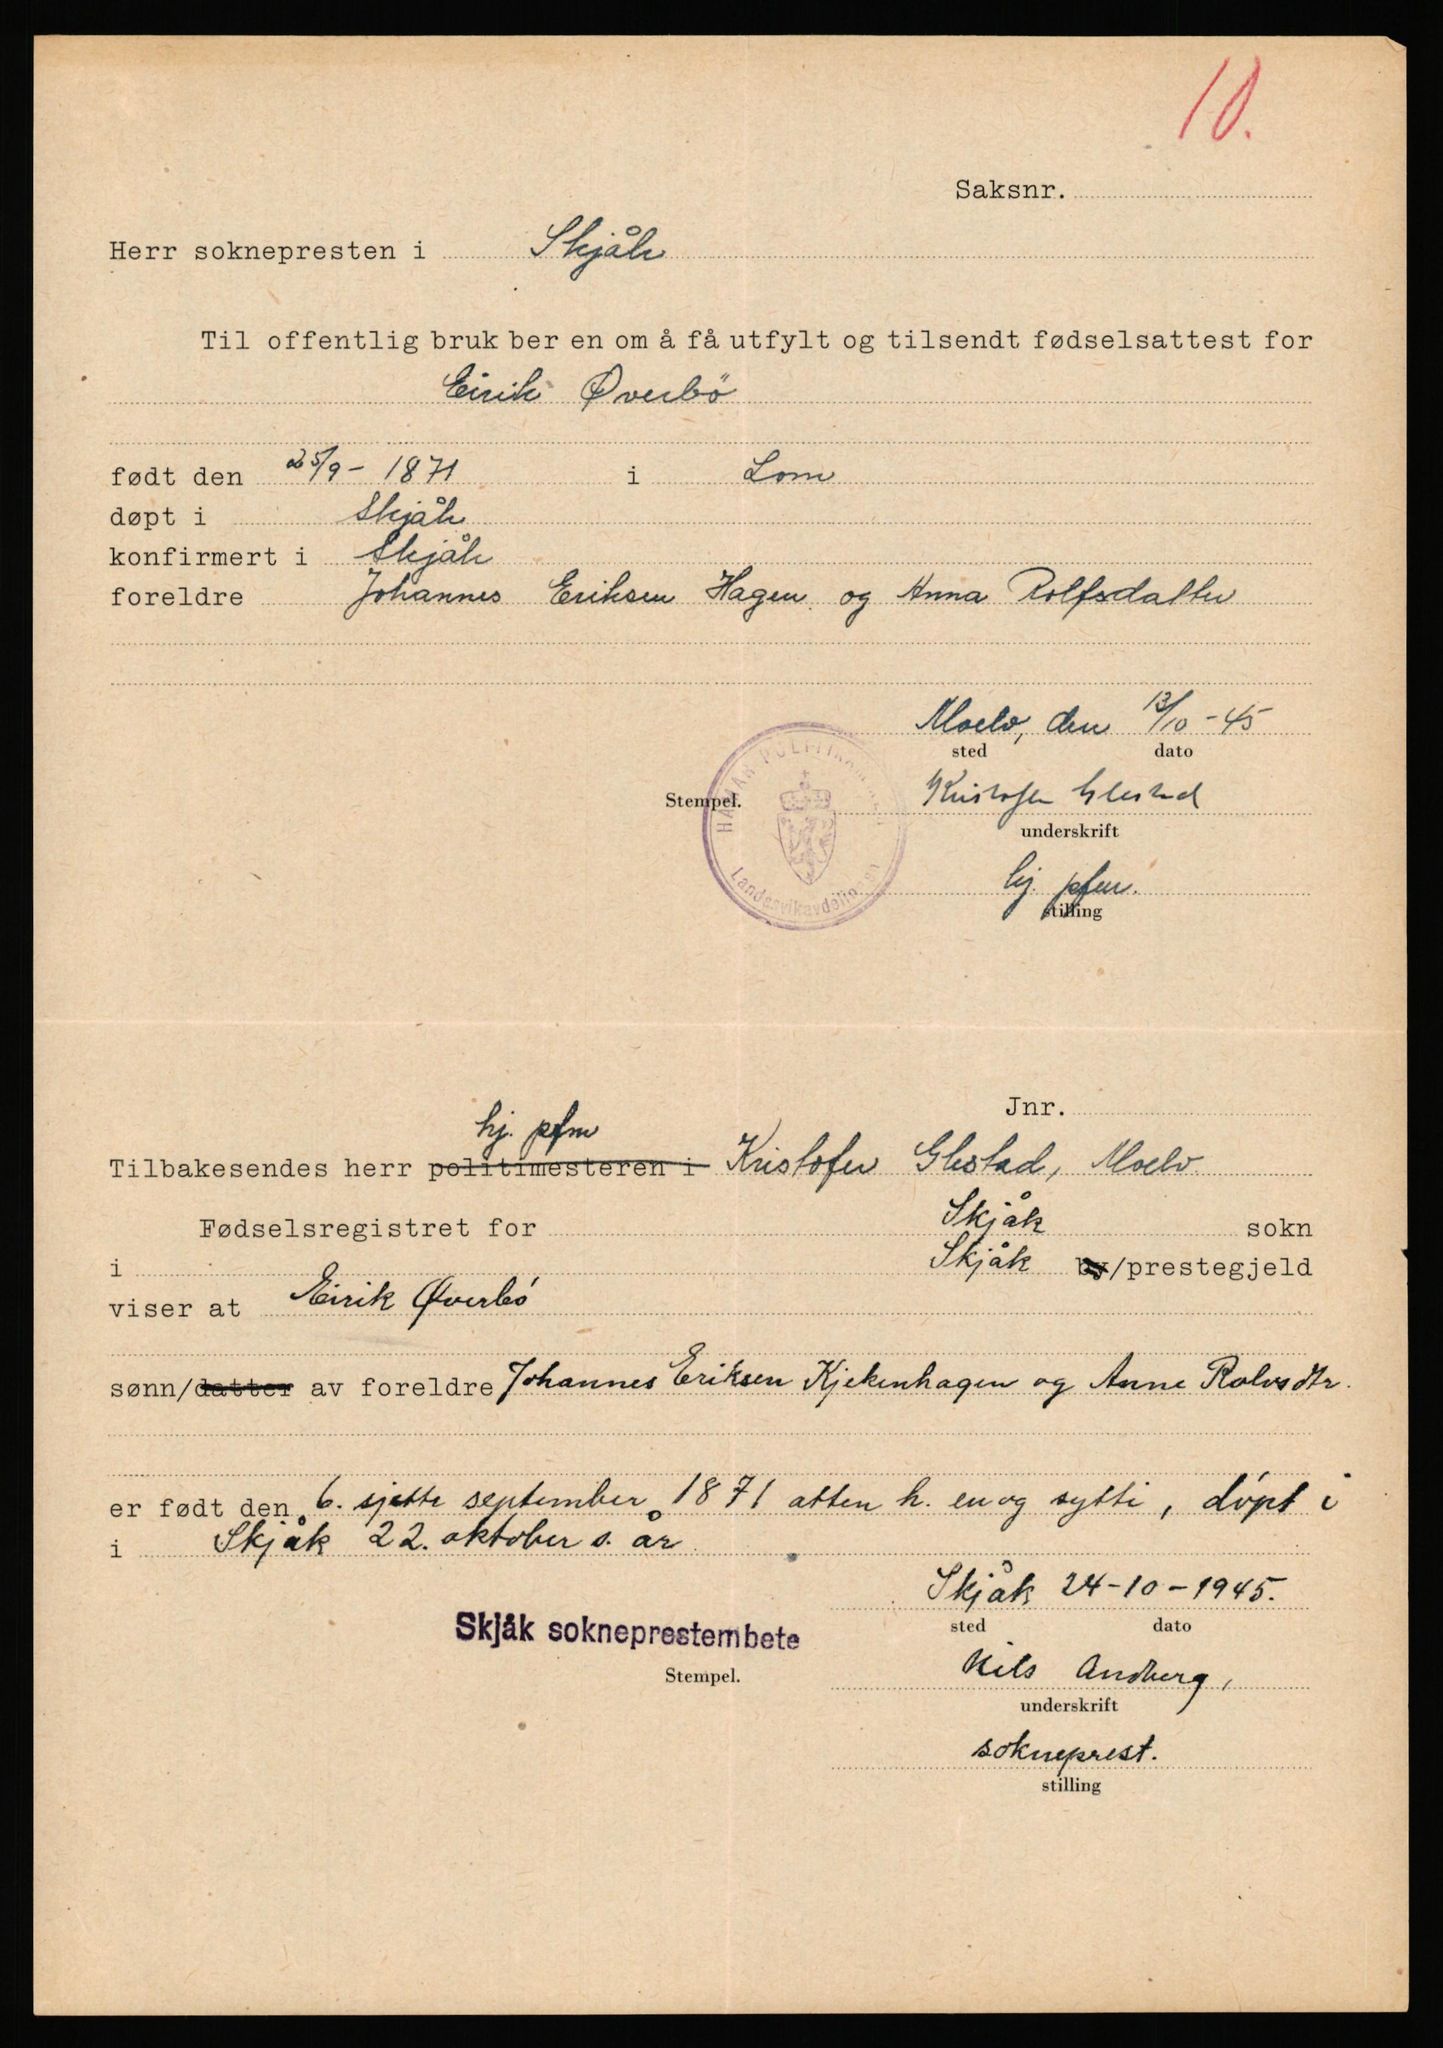 10.
Saksnr.
Herr soknepresten i Skjåk
Til offentlig bruk ber en om å få utfylt og tilsendt fødselsattest for
Eirik Øverbö
født den 25/9 - 1871 i Lom
døpt i Skjåk
konfirmert i Skjåk
foreldre Johannes Eriksen Hagen og Anna Rolfsdatter
Moelv, den 13/10 - 45
sted dato
Stempel. Kristofer Glestad
underskrift
HAMAR POLITIKAMMER
Landssvikavdelingen
hj. pfm.
stilling
Jnr.
hj. pfm
Tilbakesendes herr politimesteren i Kristofer Glestad, Moelv
Fødselsregistret for Skjåk sokn
i Skjåk by/prestegjeld
viser at Eirik Øverbó
sønn/datter av foreldre Johannes Eriksen Kjekenhagen og Anne Rolvsdtr.
er født den 6. sjette september 1871 atten h. en og sytti, døpt i
i Skjåk 22. oktober s. år
Skjåk 24-10-1945.
sted dato
Skjåk sokneprestembete
Stempel.
Nils Andberg,
underskrift
sokneprest.
stilling